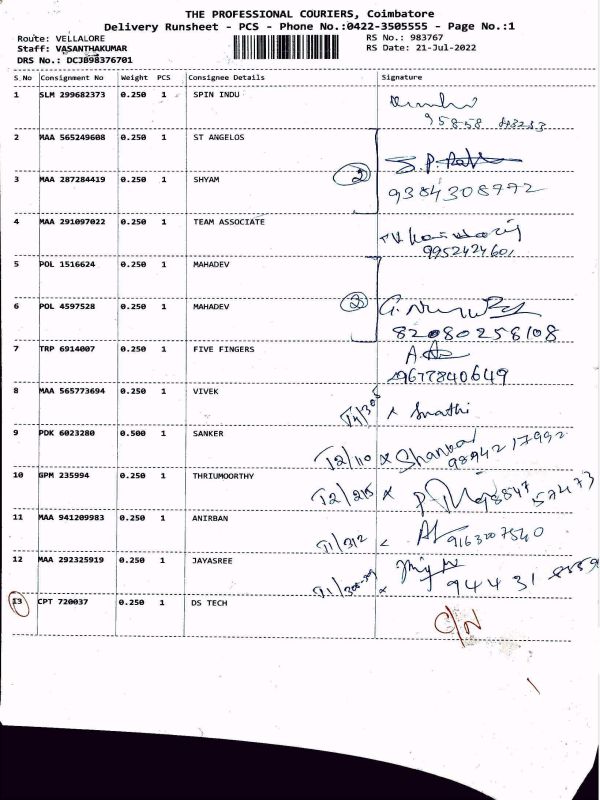 THE PROFESSIONAL COURIERS, Coimbatore
Delivery Runsheet - PCS - Phone No.:0422-3505555 - Page No.:1
Route: VELLALORE RS No.: 983767
Staff: VASANTHAKUMAR RS Date: 21-Jul-2022
DRS No.: DCJB98376701
S.No Consignment No Weight PCS Consignee Details Signature
1 SLM 299682373 0.250 1 SPIN INDU
95858
2 MAA 565249608 0.250 1 ST ANGELOS
2 S.P.
3 MAA 287284419 0.250 1 SHYAM
9384308992
4 MAA 291097022 0.250 1 TEAM ASSOCIATE
9952424601
5 POL 1516624 0.250 1 MAHADEV
2 G.
6 POL 4597528 0.250 1 MAHADEV
82080258108
7 TRP 6914007 0.250 1 FIVE FINGERS
9677840649
8 MAA 565773694 0.250 1 VIVEK
9 PDK 6023280 0.500 1 SANKER
T2/110 x Shankar
9894217992
10 GPM 235994 0.250 1 THRIUMOORTHY
T2/215 x P 98847 57473
11 MAA 941209983 0.250 1 ANIRBAN
T1/312 9163207540
12 MAA 292325919 0.250 1 JAYASREE
94431
13 CPT 720037 0.250 1 DS TECH
C/N